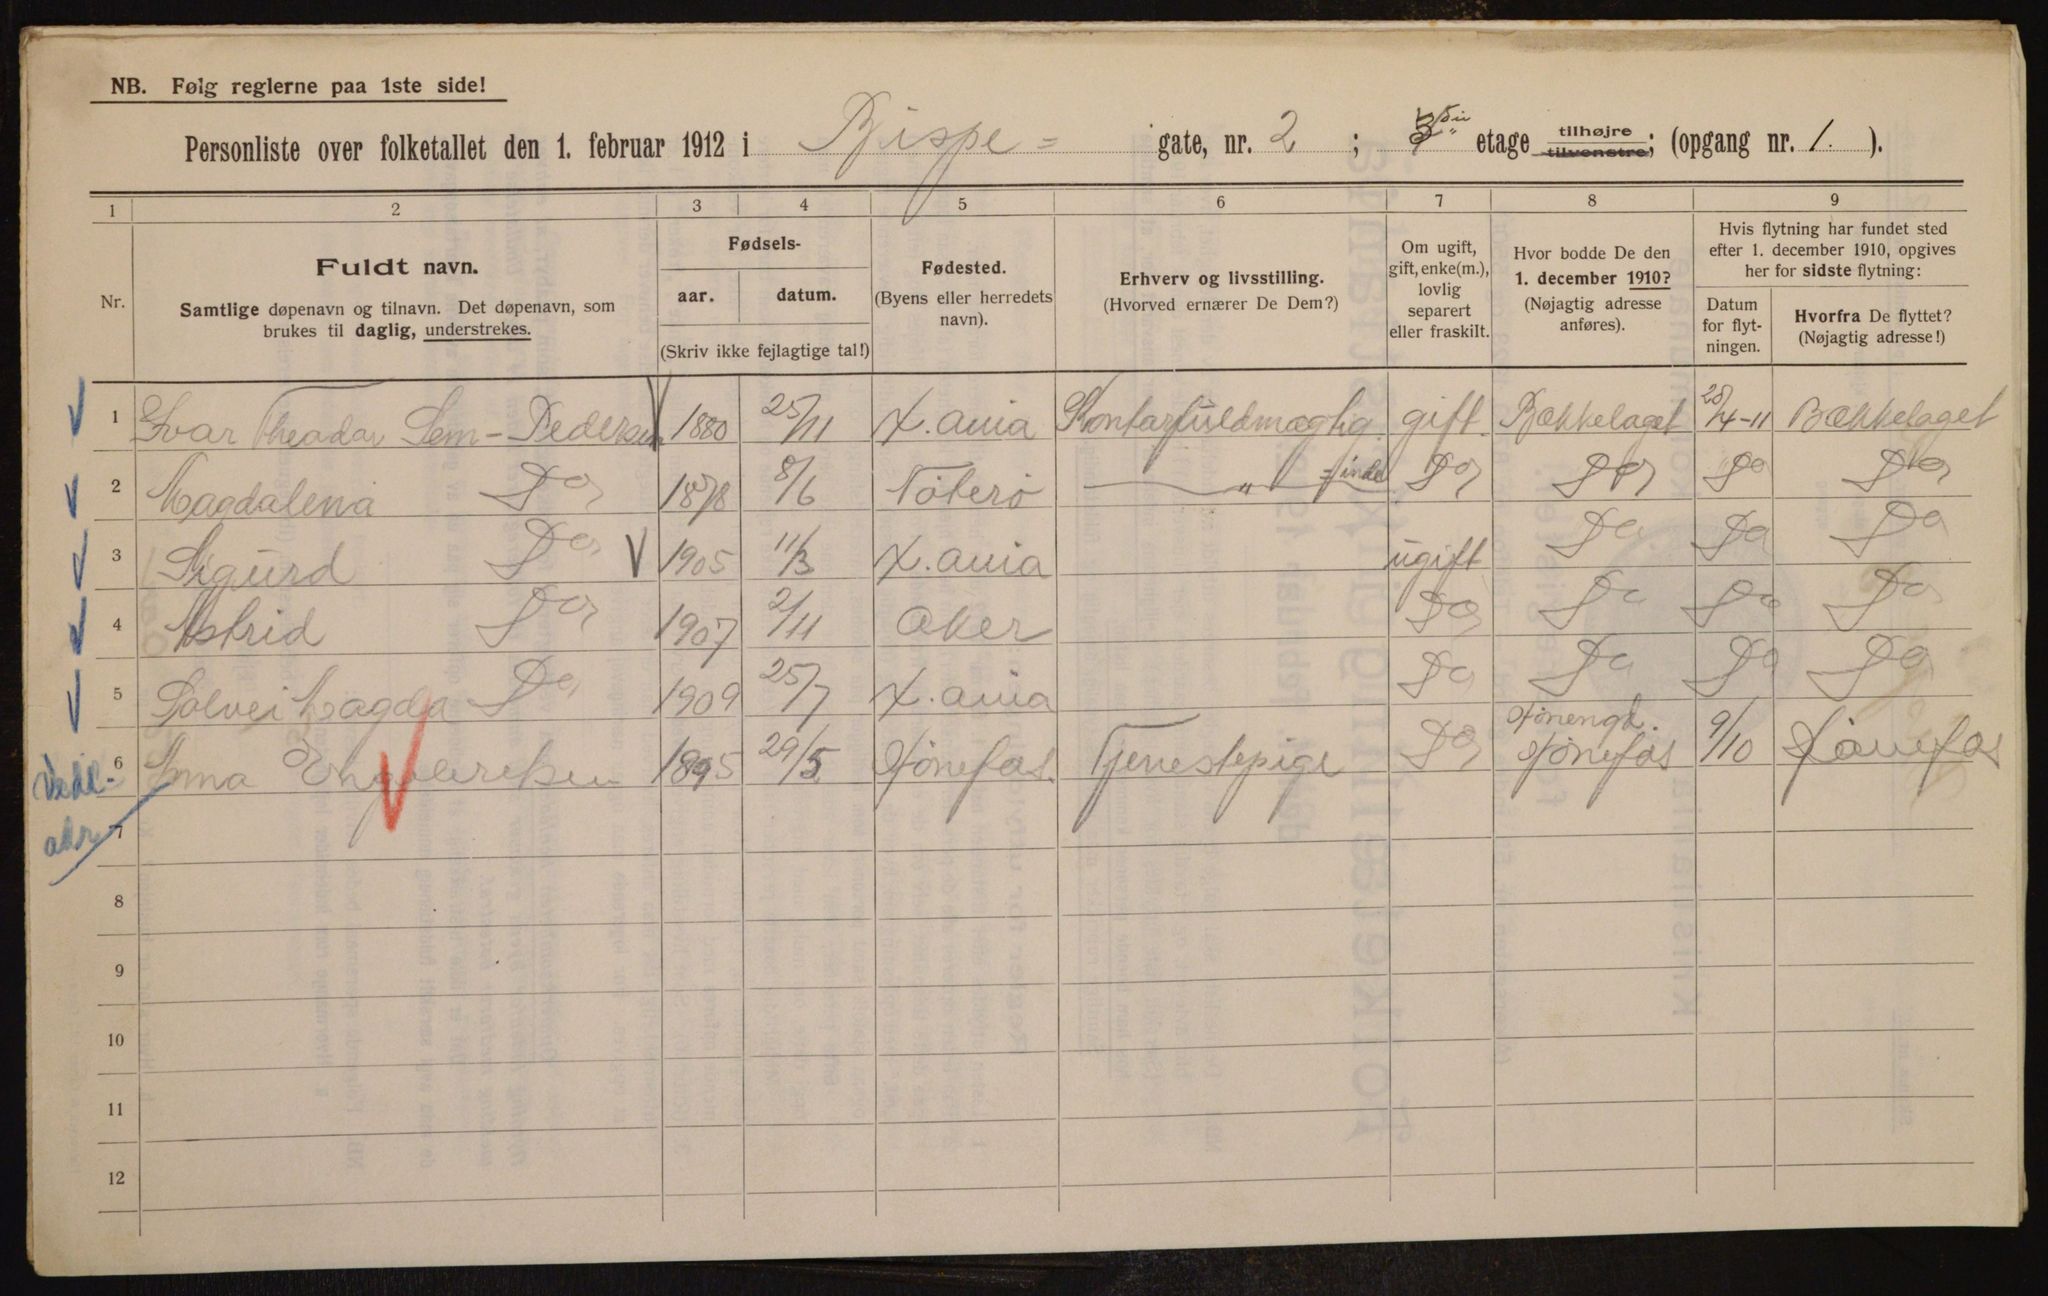 NB. Følg reglerne paa 1ste side!
Personliste over folketallet den 1. februar 1912 i Bispe= gate, nr. 2 ; etage tilhøjre tilvenstre; (opgang nr. 1. ).
1 2 3 4 5 6 7 8 9
Nr.
Fuldt navn.
Samtlige døpenavn og tilnavn. Det døpenavn, som
brukes til daglig, understrekes.
Fødsels-
aar. datum.
(Skriv ikke fejlagtige tal!)
Fødested.
(Byens eller herredets
navn).
Erhverv og livsstilling.
(Hvorved ernærer De Dem?)
Om ugift,
gift, enke(m.),
lovlig
separert
eller fraskilt.
Hvor bodde De den
1. december 1910?
(Nøjagtig adresse
anføres).
Hvis flytning har fundet sted
efter 1. december 1910, opgives
her for sidste flytning:
Datum
for flyt-
ningen.
Hvorfra De flyttet?
(Nøjagtig adresse!)
1 Ivar Theodor Sem-Pedersen 1880 25/11 X.ania Kontorfuldmægtig gift. Bækkelaget 28/4-11 Bækkelaget
2 Magdalena Do 1878 8/6 Nøterø " =inde Do Do Do Do
3 Sigurd Do 1905 11/3 X.ania ugift Do Do Do
4 Astrid Do 1907 2/11 Aker Do Do Do Do
5 Solvei Magda Do 1909 25/7 X.ania Do Do Do Do
6 Anna 1895 29/5 Tjenestepige Do 9/10
7
8
9
10
11
12